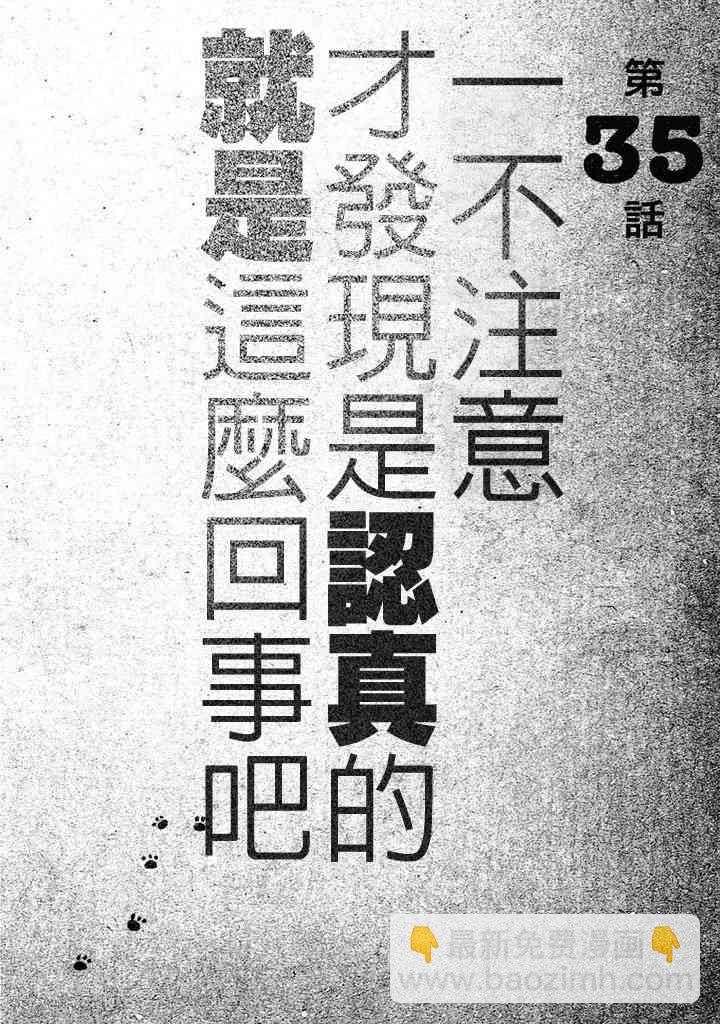 第35話
一不注意
才發現是認真的
就是這麼回事吧
👇最新免费漫画👇
www.baozimh.com